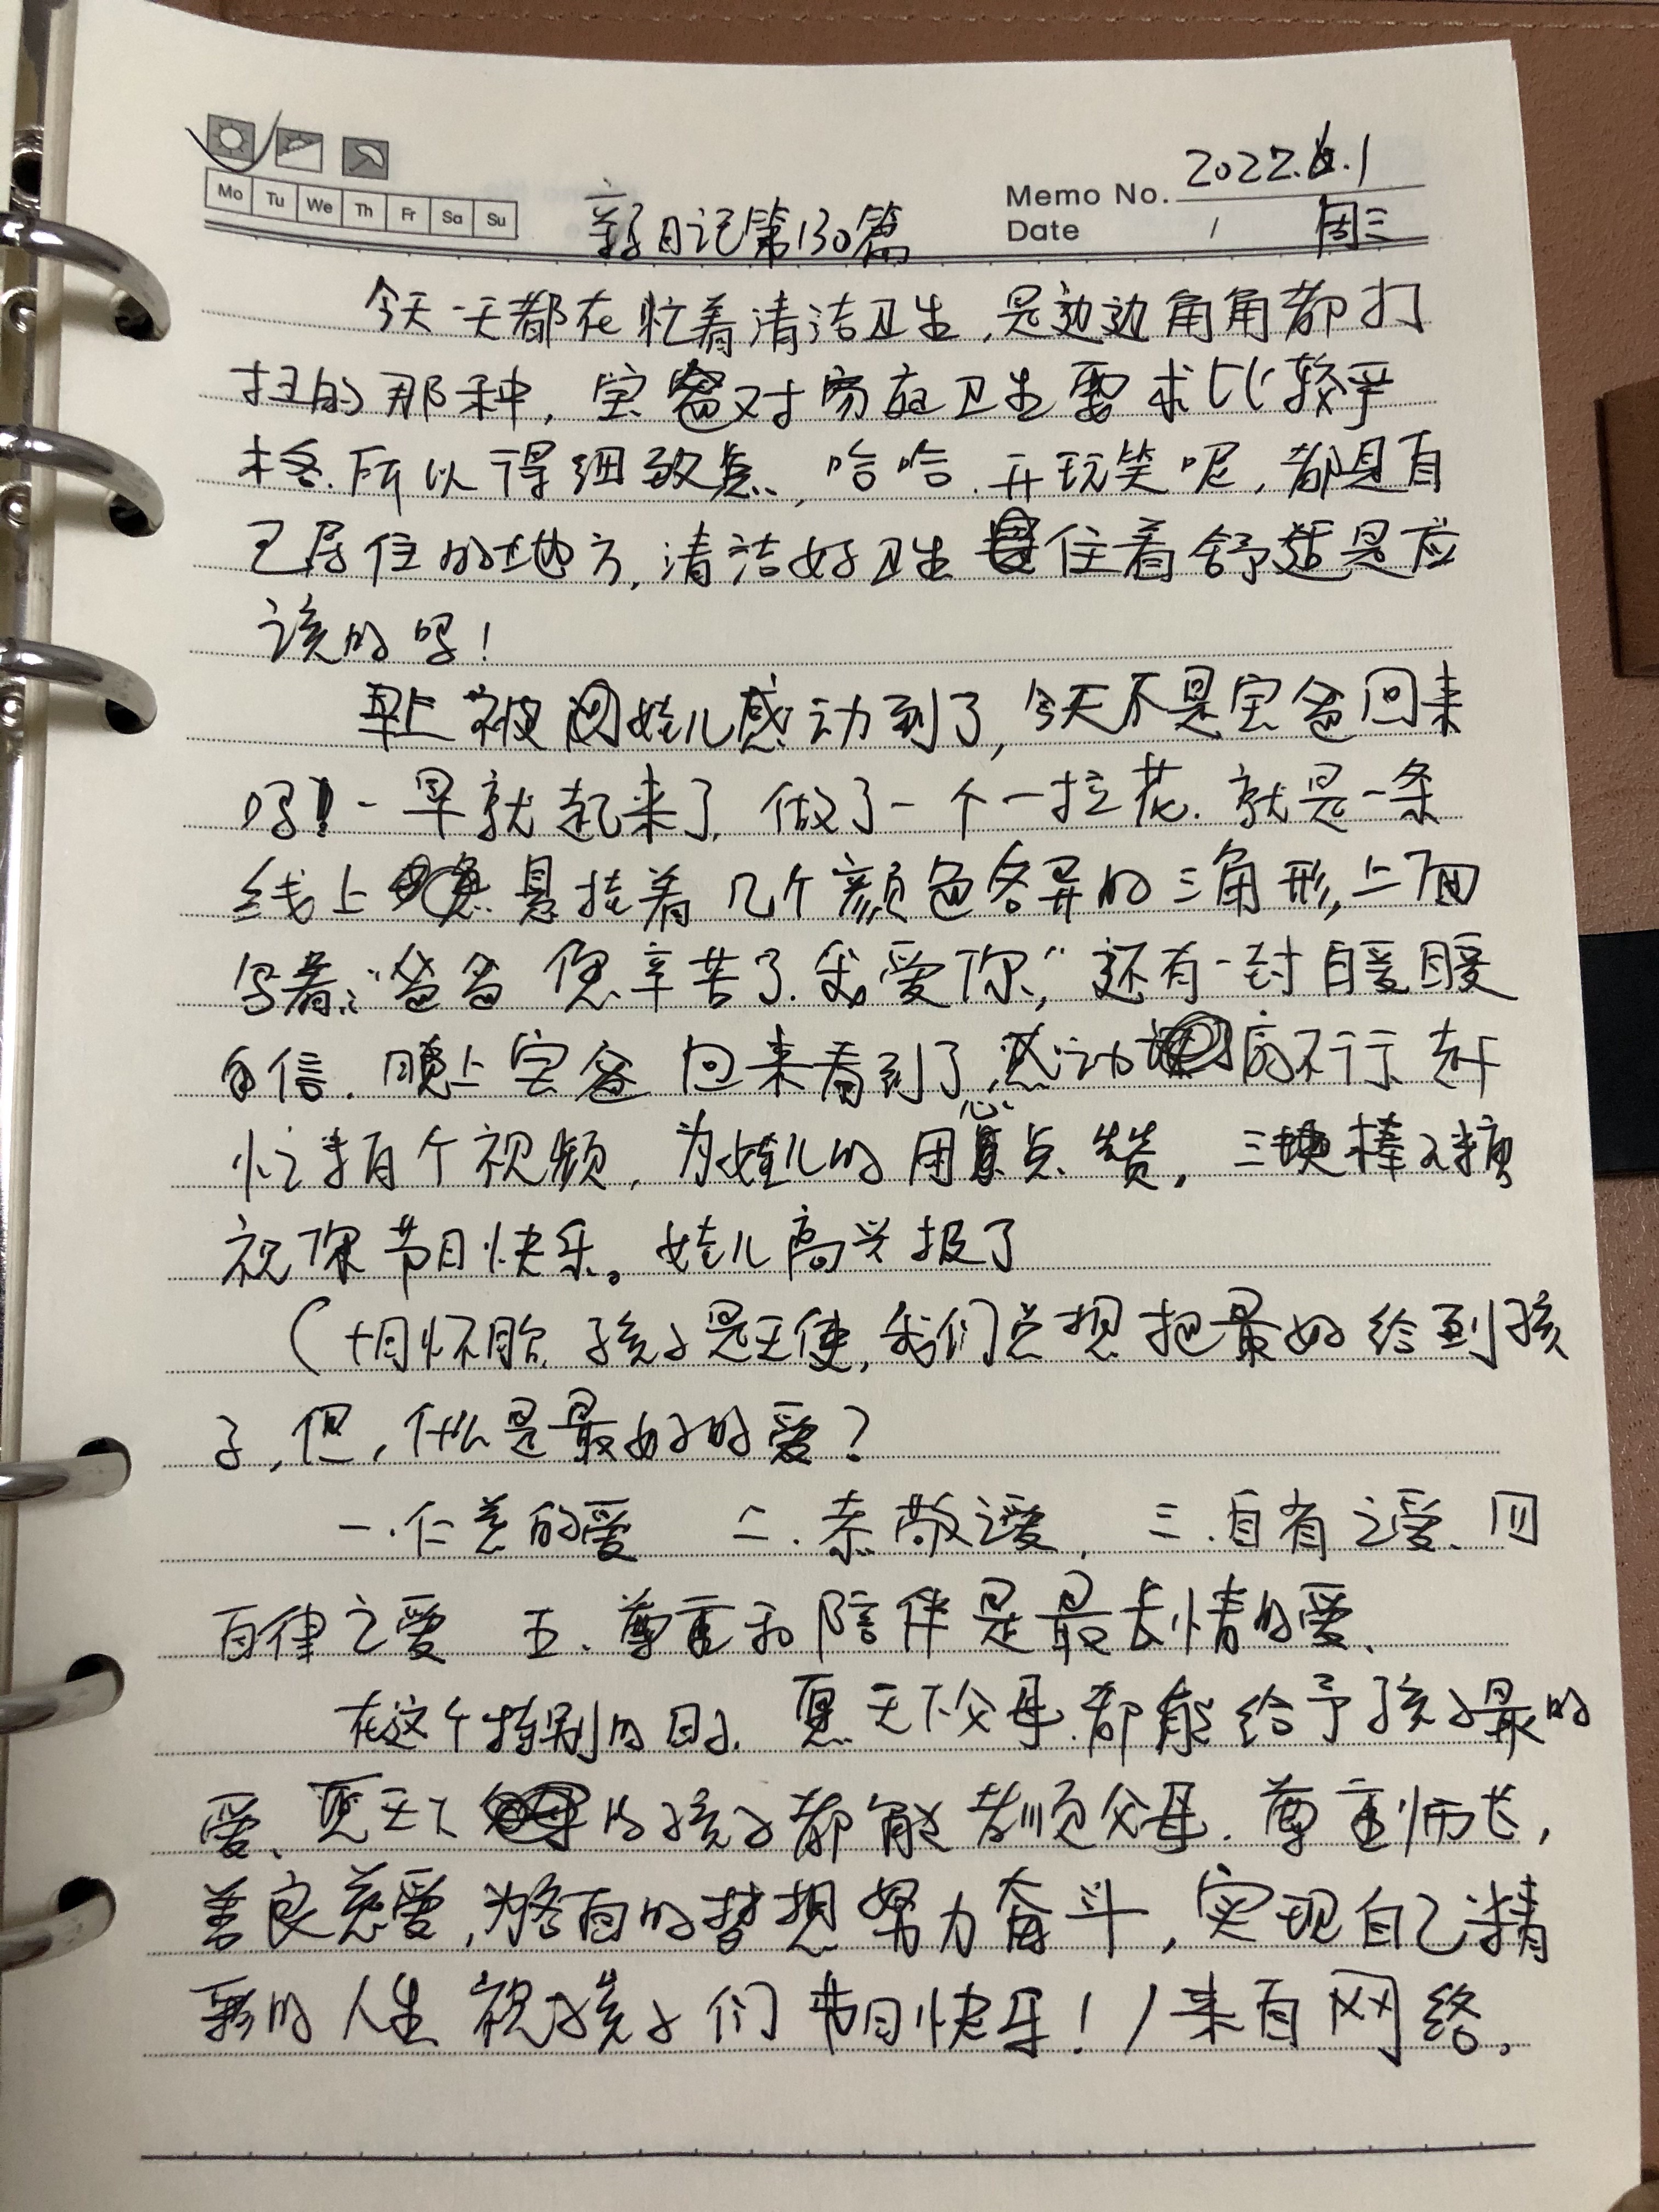 Mo Tu We Th Fr Sa Su
Memo No. 2022.6.1
Date / 周三
亲子日记第130篇
今天一天都在忙着清洁卫生,是边边角角都打
扫的那种,宝爸对家庭卫生要求比较严
格.所以得细致点,哈哈.开玩笑呢,都是自
己居住的地方,清洁好卫生住着舒适是应
该的吗!
早上被闺娃儿感动到了,今天不是宝爸回来
吗!一早就起来了,做了一个一拉花.就是一条
线上悬挂着几个颜色各异的三角形,上面
写着:“爸爸您辛苦了.我爱你,”还有一封暖暖
的信.晚上宝爸回来看到了,感动的不行赶
忙拍个视频,为娃儿的用心点赞,三块棒棒糖
祝你节日快乐。娃儿高兴极了
(十月怀胎,孩子是天使,我们总想把最好给到孩
子,但,什么是最好的爱?
一.仁慈的爱 二.素敬之爱, 三.自省之爱、四
自律之爱 五、尊重和陪伴是最长情的爱、
在这个特别的日子,愿天下父母都能给予孩子最的
爱、愿天下的孩子都能孝顺父母.尊重师长,
善良慈爱,为各自的梦想努力奋斗,实现自己精
彩的人生 祝孩子们节日快乐!/来自网络.